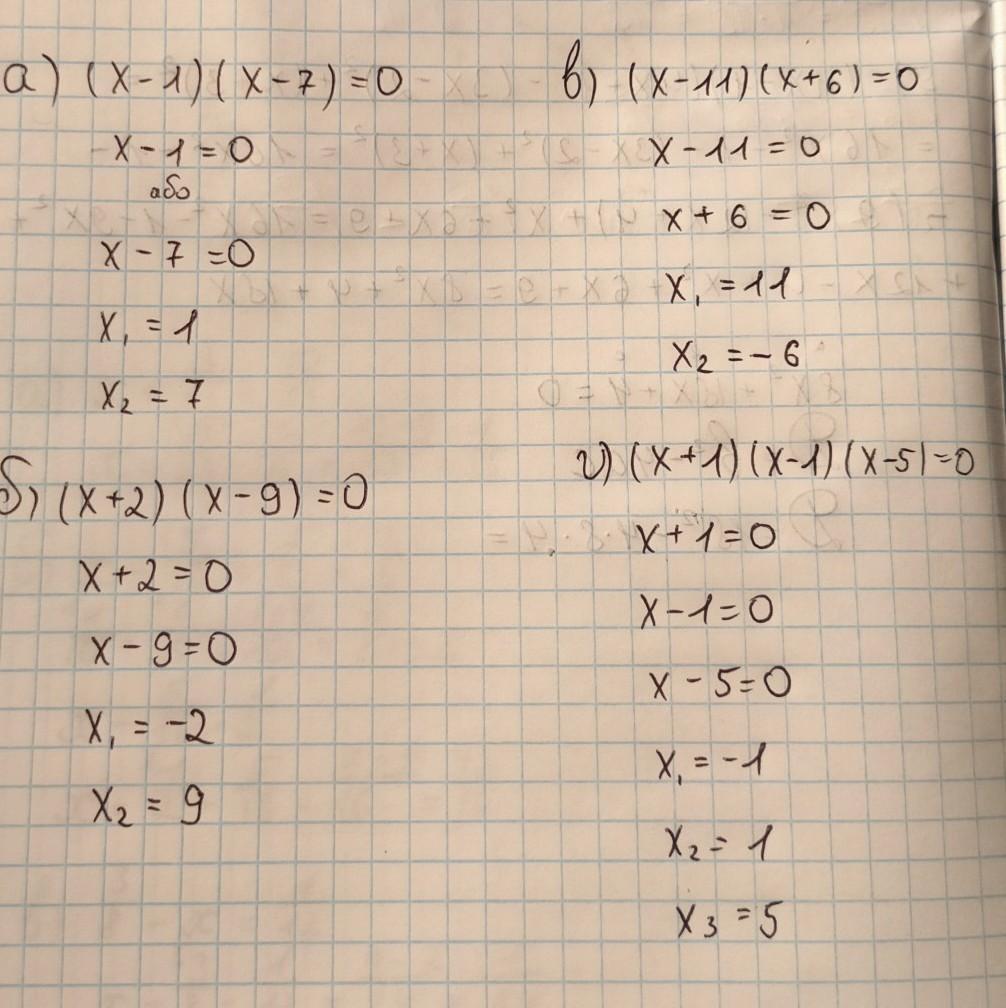 а) (x-1)(x-7)=0
x-1=0
або
x-7=0
x₁=1
x₂=7
б) (x+2)(x-9)=0
x+2=0
x-9=0
x₁=-2
x₂=9
в) (x-11)(x+6)=0
x-11=0
x+6=0
x₁=11
x₂=-6
г) (x+1)(x-1)(x-5)=0
x+1=0
x-1=0
x-5=0
x₁=-1
x₂=1
x₃=5